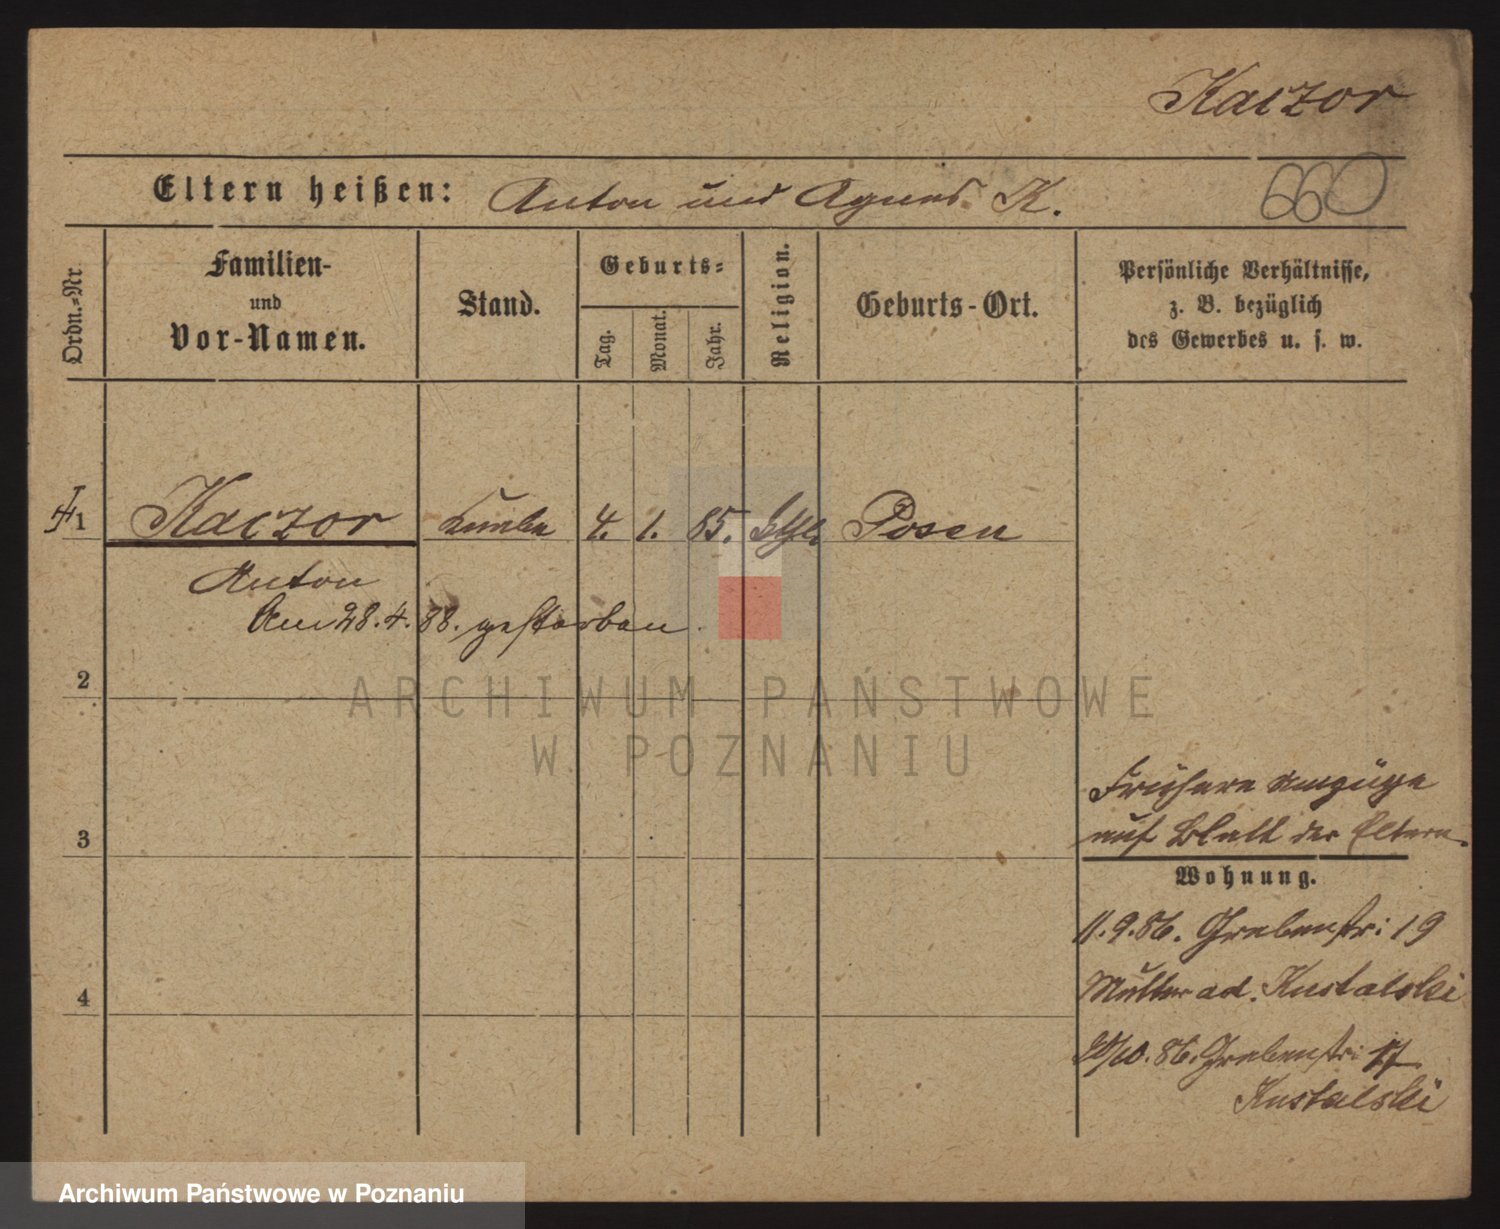 Kaczor
Eltern heißen: Anton und Agnes K.
660
Ordn.-Nr.
Familien-
und
Vor-Namen.
Stand.
Geburts-
Tag.
Monat.
Jahr.
Religion.
Geburts-Ort.
Persönliche Verhältnisse,
z. B. bezüglich
des Gewerbes u. s. w.
1 Kaczor 4. 1. 85. Posen
Anton
Am 28. 4. 88. gestorben
2
ARCHIWUM PAŃSTWOWE
W POZNANIU
Frühere Umzüge
3 auf Blatt der Eltern.
Wohnung.
11. 9. 86. Grabenstr: 19
4 Mutter ad.
10. 86. Grabenstr:
Archiwum Państwowe w Poznaniu